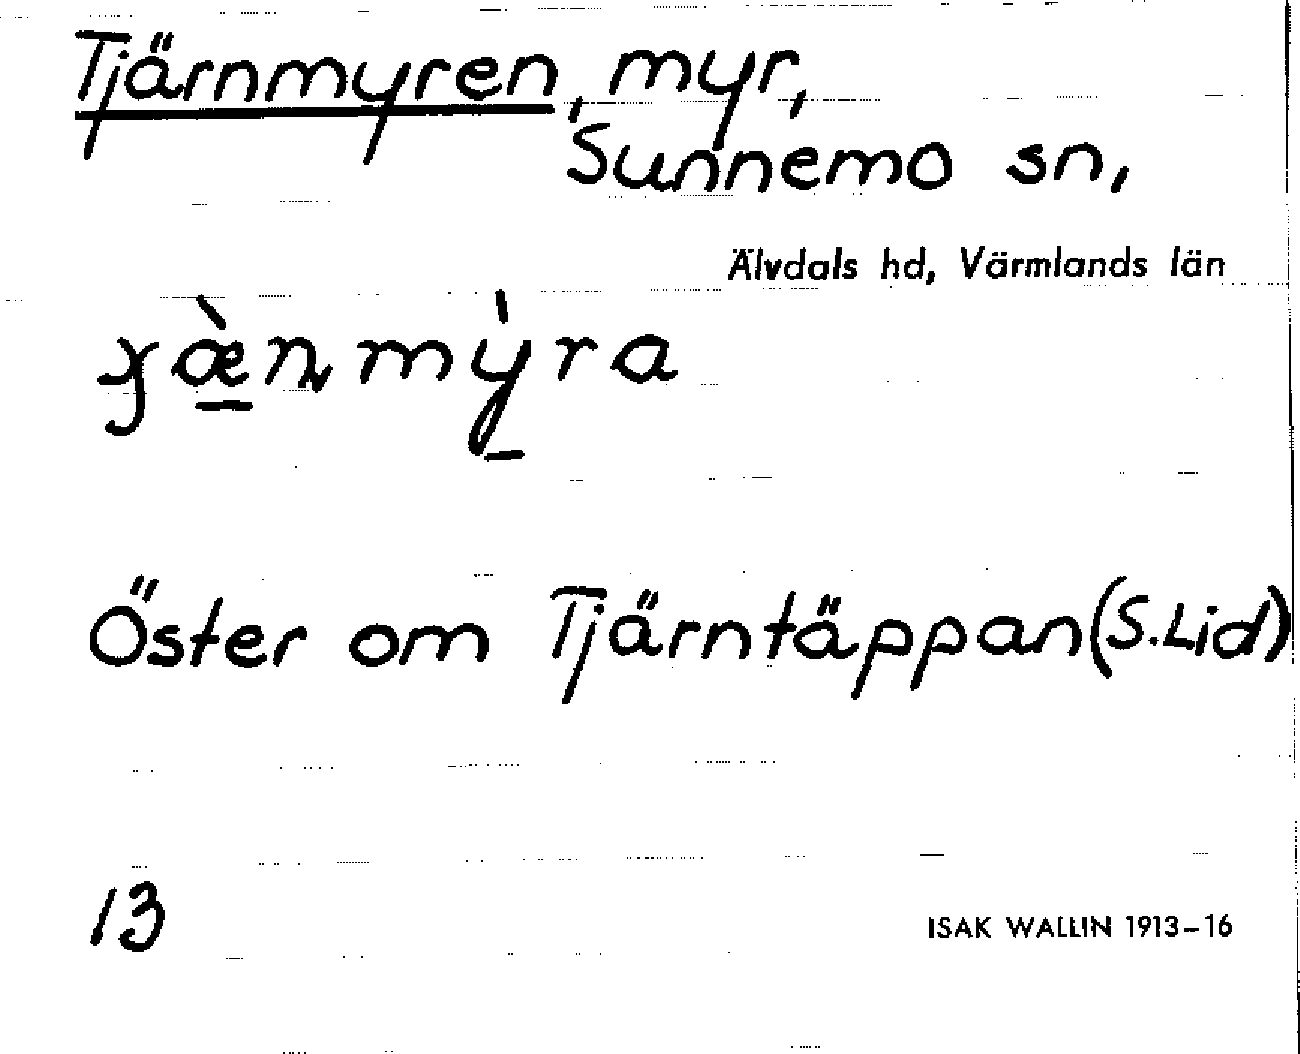 Tjärnmyren, myr,
Sunnemo sn,
Älvdals hd, Värmlands län
Öster om Tjärntäppan (S. Lid)
13
ISAK WALLIN 1913–16